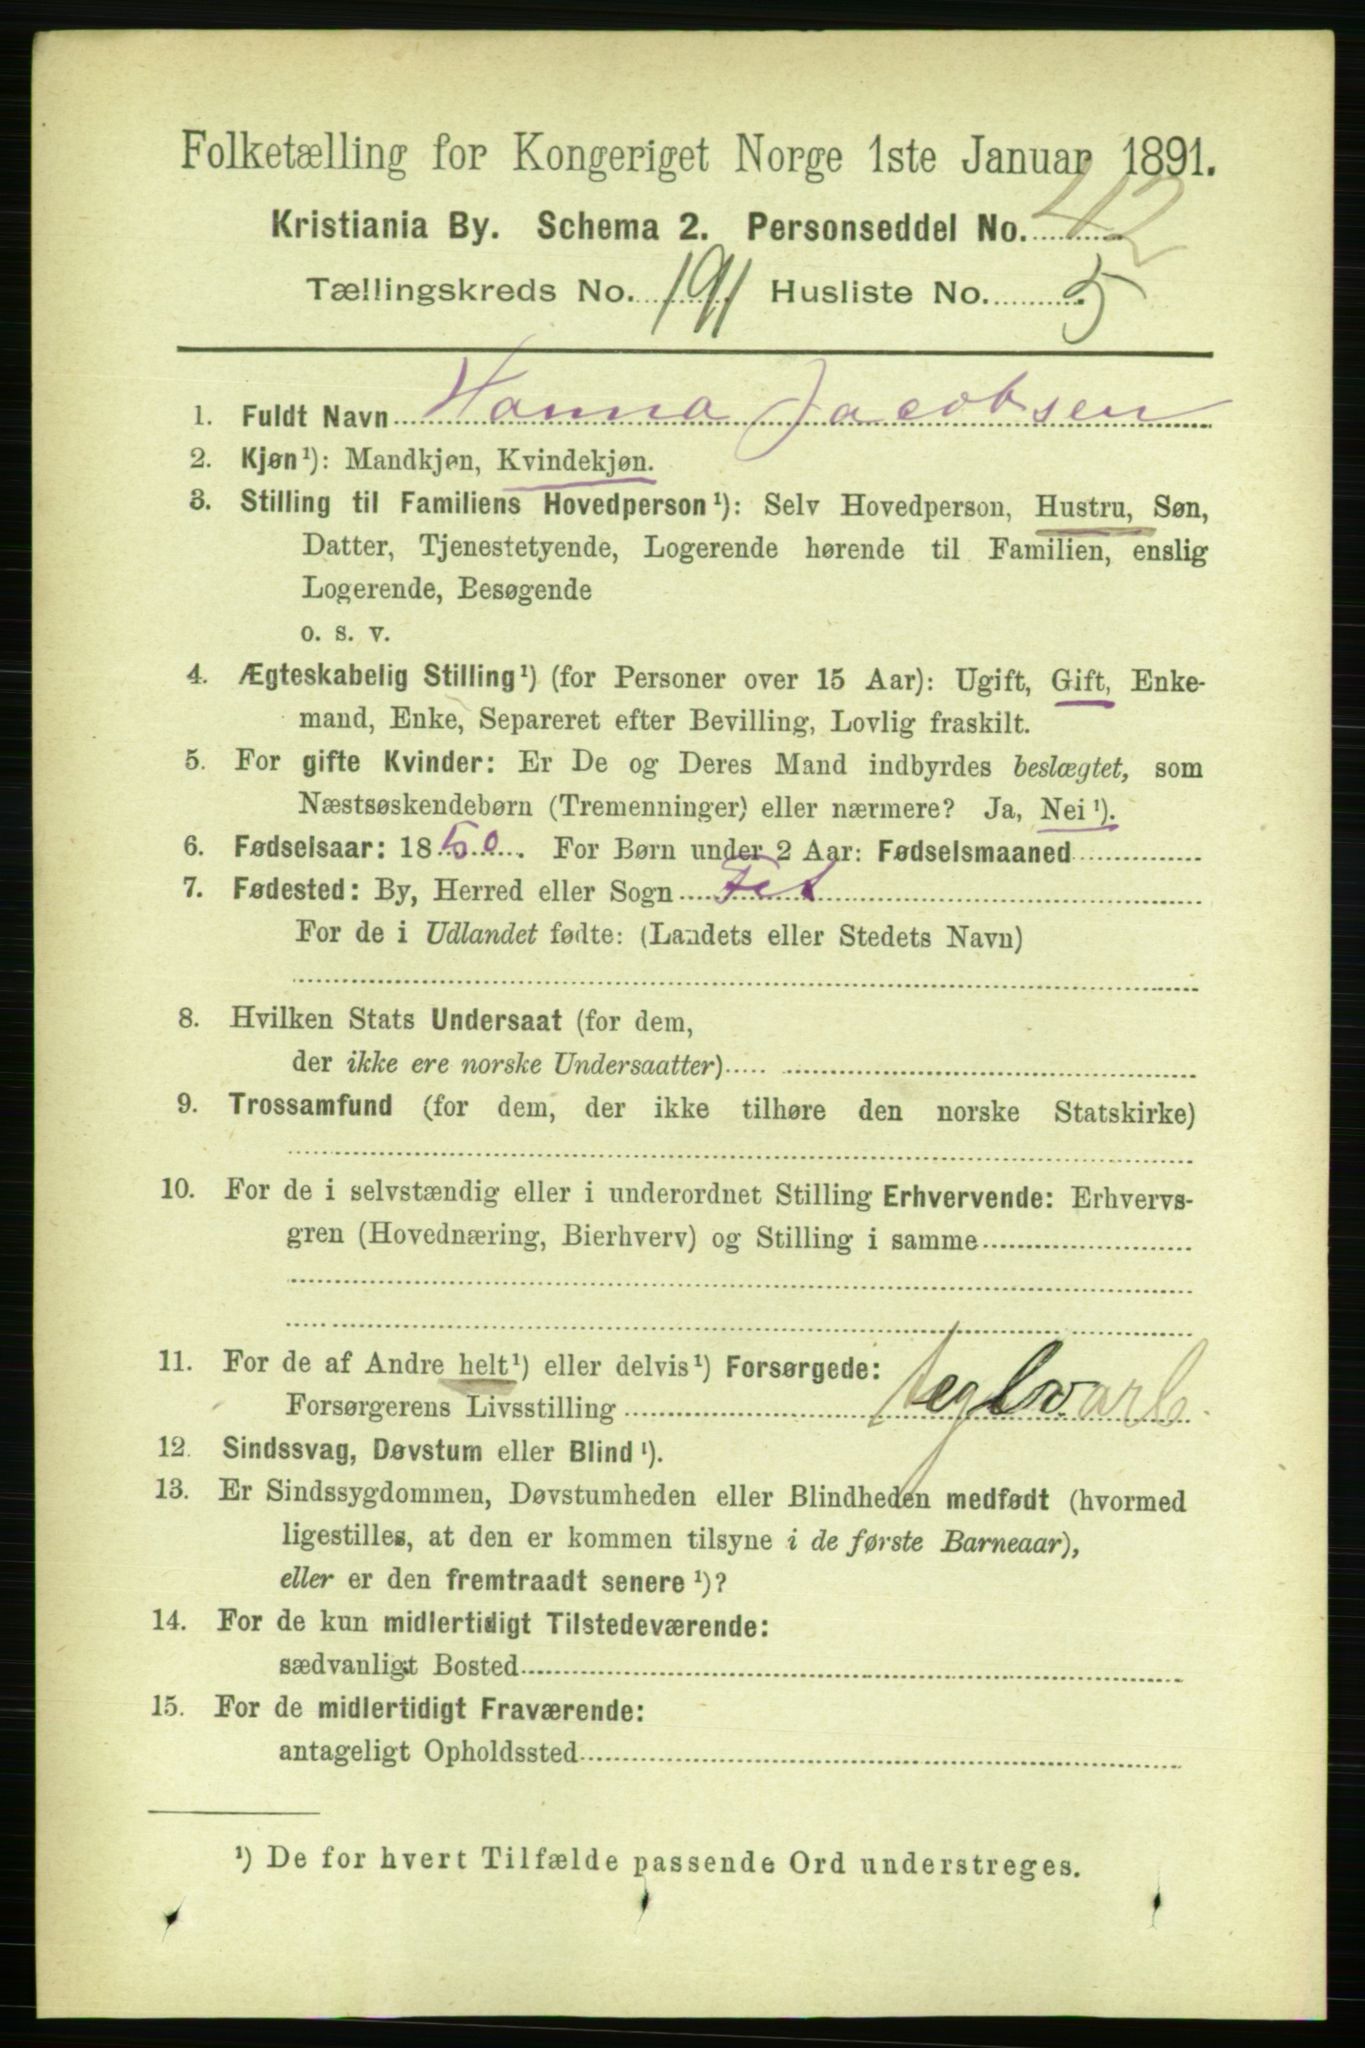 Folketælling for Kongeriget Norge 1ste Januar 1891.
Kristiania By. Schema 2. Personseddel No. 42
Tællingskreds No. 191 Husliste No. 5
1. Fuldt Navn Hanna Jacobsen
2. Kjøn¹): Mandkjøn, Kvindekjøn.
3. Stilling til Familiens Hovedperson¹): Selv Hovedperson, Hustru, Søn,
Datter, Tjenestetyende, Logerende hørende til Familien, enslig
Logerende, Besøgende
o. s. v.
4. Ægteskabelig Stilling¹) (for Personer over 15 Aar): Ugift, Gift, Enke-
mand, Enke, Separeret efter Bevilling, Lovlig fraskilt.
5. For gifte Kvinder: Er De og Deres Mand indbyrdes beslægtet, som
Næstsøskendebørn (Tremenninger) eller nærmere? Ja, Nei¹).
6. Fødselsaar: 1850. For Børn under 2 Aar: Fødselsmaaned
7. Fødested: By, Herred eller Sogn Fet
For de i Udlandet fødte: (Landets eller Stedets Navn)
8. Hvilken Stats Undersaat (for dem,
der ikke ere norske Undersaatter)
9. Trossamfund (for dem, der ikke tilhøre den norske Statskirke)
10. For de i selvstændig eller i underordnet Stilling Erhvervende: Erhvervs-
gren (Hovednæring, Bierhverv) og Stilling i samme
11. For de af Andre helt¹) eller delvis¹) Forsørgede:
Forsørgerens Livsstilling teglv.arb.
12. Sindssvag, Døvstum eller Blind¹).
13. Er Sindssygdommen, Døvstumheden eller Blindheden medfødt (hvormed
ligestilles, at den er kommen tilsyne i de første Barneaar),
eller er den fremtraadt senere¹)?
14. For de kun midlertidigt Tilstedeværende:
sædvanligt Bosted
15. For de midlertidigt Fraværende:
antageligt Opholdssted
¹) De for hvert Tilfælde passende Ord understreges.